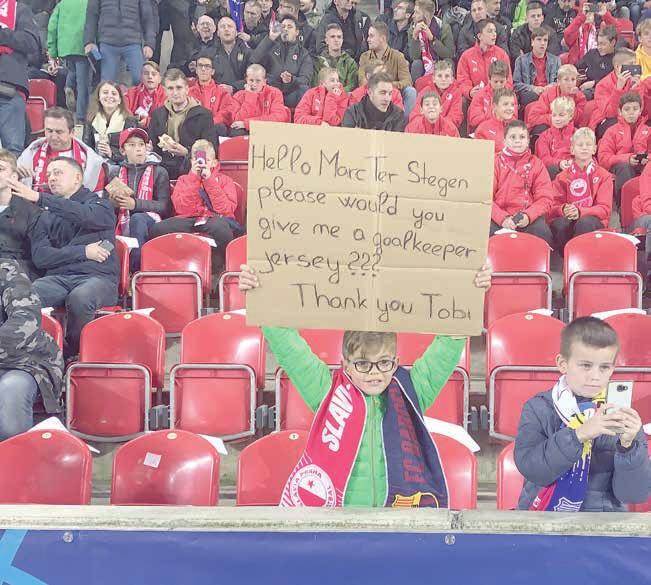 Hello Marc Ter Stegen
please would you
give me a goalkeeper
jersey???
Thank you Tobi
SLAVI
SLAVIA PRAHA
FC BAR